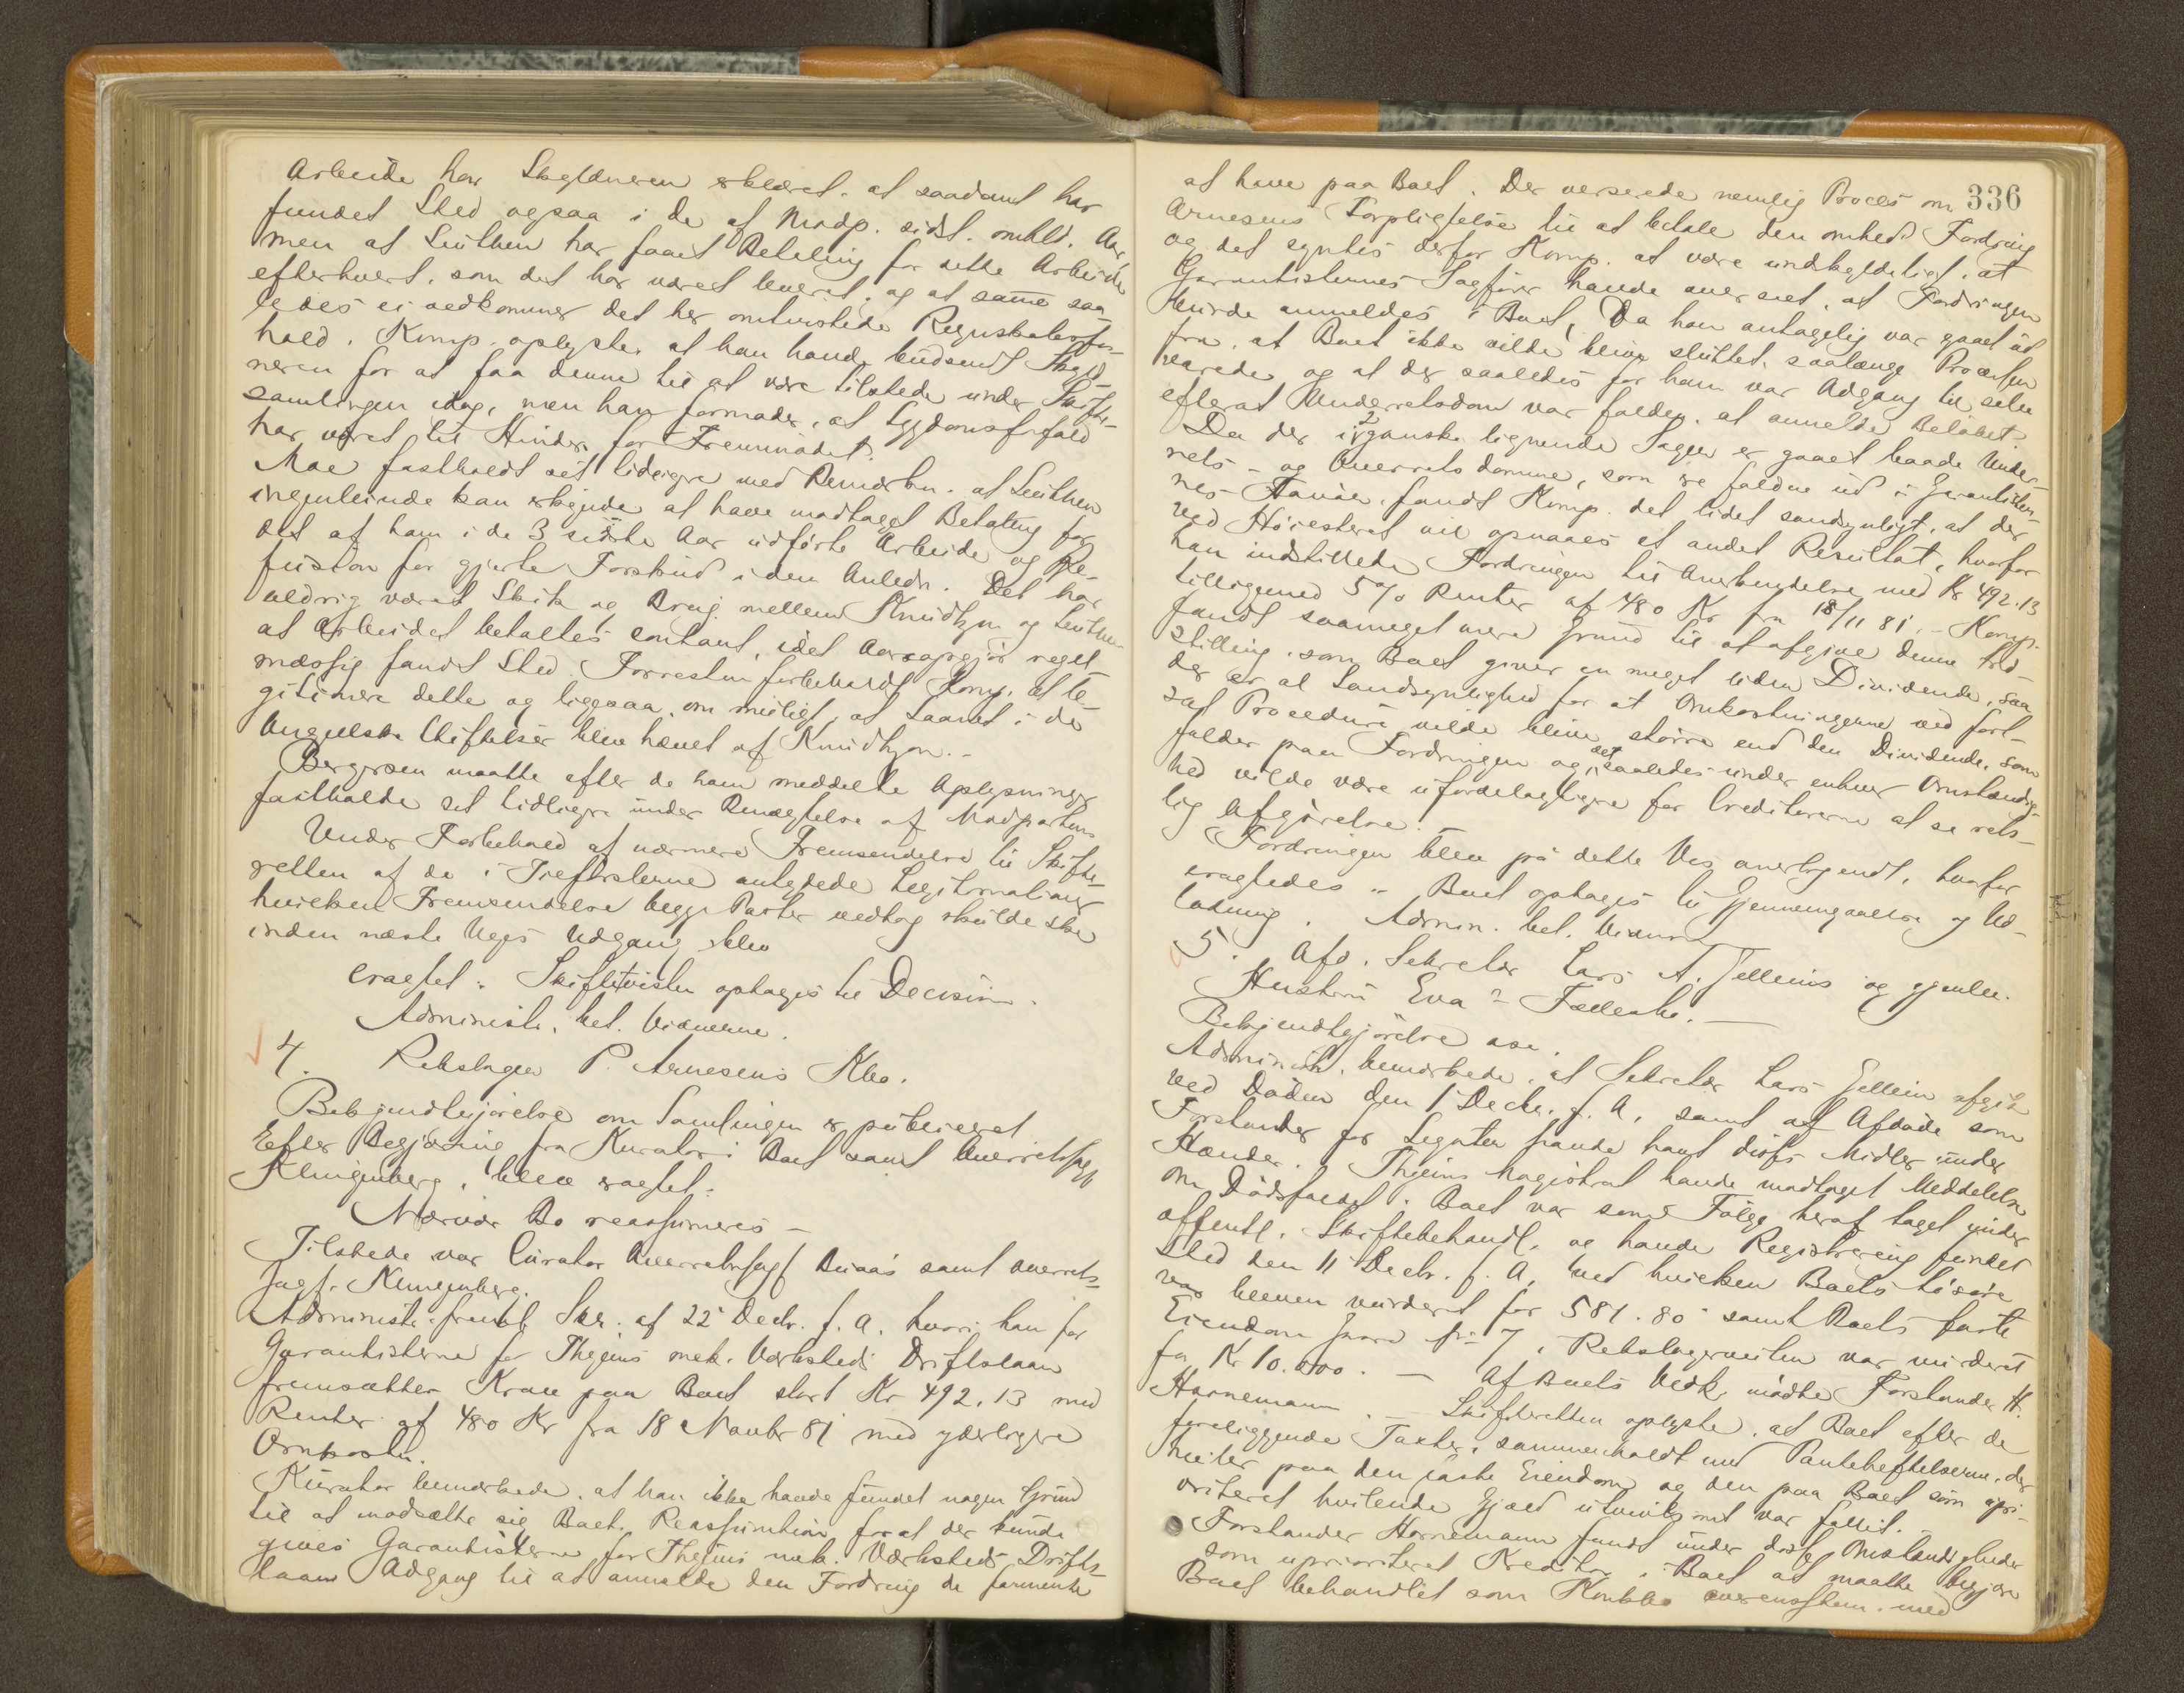 Arbeide har Skyldneren erklæret, at saadant har
fundet Sted ogsaa i de af Modp. sidst omhlt. Aar,
men at Leuthen har faaet Betaling for dette Arbeide
efterhvert, som det har været leveret, og at samme saa-
ledes ei vedkommer det her omtvistede Regnskabsfor-
hold. Komp. oplyste, at han havde budsendt Skyld-
neren for at faa denne til at være tilstede under Skifte-
samlingen idag, men han formoder, at Sygdomsforfald
har været til Hinder for Fremmødet.
Moe fastholdt sit tidligere med Bemærkn. at Leuthen
ingenlunde kan erkjende at have modtaget Betaling for
det af ham i de 3 sidste Aar udførte Arbeide og Re-
fusion for gjorte Forskud i den Anledn. Det har
aldrig været Skik og Brug mellem Knudtzon og Leuthen
at Arbeidet betaltes contant, idet Aarsopgjør regel-
mæssig fandt Sted. Forresten forbeholdt Komp. at le-
gitimere dette og ligesaa, om muligt, at Laanet i de
Angellske Stiftelser blev hævet af Knudtzon. -
Bergersen maatte efter de ham meddelte Oplysninger
fastholde sit tidligere under Benægtelse af Modpartens
Under Forbehold af nærmere Fremsendelse til Skifte-
retten af de i Tilførslerne antydede Legitimationer
hvilken Fremsendelse begge Parter vedtog skulde ske
inden næste Uges Udgang blev
eragtet: Skiftetvisten optages til Decision.
Administr. bet. Vidnerne.
4. Rebslager P. Arnesens Kbo.
Bekjendtgjørelse om Samlingen er publiceret
Efter Begjæring fra Kurator i Boet samt Overretssagf
Klingenberg, blev eragtet:
Nærvær. Bo reassumeres -
Tilstede var Curator Overretssagf Buaas samt Overrets-
sagf. Klingenberg.
Administr. fremlagde Skr. af 22 Decbr. f. A. hvori han for
Garantisterne for Thrjems mek. Værksteds Driftslaan
fremsætter Krav paa Boet stort Kr 492.13 med
Renter af 480 Kr fra 18 Novbr 81 med yderligere
Omkostn.
Kurator bemærkede, at han ikke havde fundet nogen Grund
til at modsætte sig Boets Reassumtion, for at der kunde
gives Garantisterne for Thrjems mek. Værksteds Drifts-
laan Adgang til at anmelde den Fordring de formente
336
at have paa Boet. Der verserede nemlig Proces om
Arnesens Forpligtelse til at betale den omhdl. Fordring
og det syntes derfor Komp. at være undskyldeligt, at
Garantisternes Sagfører havde overseet, at Fordringen
burde anmeldes i Boet, da han antagelig var gaaet ud
fra, at Boet ikke vilde blive sluttet, saalænge Processen
varede, og at der saaledes for ham var Adgang til, selv
efterat Underretsdom var falden, at anmelde Beløbet.
Da der i 2 ganske lignende Sager er gaaet baade Under-
rets- og Overretsdomme, som er faldne ud i Garantister-
nes Favør, fandt Komp. det lidet sandsynligt, at der
ved Høiesteret vil opnaaes et andet Resultat, hvorfor
han indstillede Fordringen til Anerkjendelse med Kr 492.13
tilligemed 5 % Renter af 480 Kr fra 18/11 81. - Komp.
fandt saameget mere Grund til at afgive denne Ind-
stilling, som Boet giver en meget liden Dividende, saa
der er al Sandsynlighed for at Omkostningerne ved fort-
sat Procedure vilde blive større end den Dividende, som
falder paa Fordringen og det saaledes under enhver Omstændig-
hed vilde være ufordelagtigere for Creditorerne at se rets-
lig Afgjørelse. -
Fordringen blev på dette Vis anerkjendt, hvorfor
eragtedes: Boet optages til Gjennemgaaelse og Ud-
lodning. Admin. bet. Vidnerne
5. Afd. Sekretær Lars A. Jelleins og gjenlev.
Hustru Eva ? Fællesbo. -
Bekjendtgjørelse osv.
Administr. bemærkede, at Sekretær Lars Jellein afgik
ved Døden den 1 Decbr. f. A. samt at Afdøde som
Forstander for Legater havde havt disses Midler under
Hænder. Thjems Magistrat havde modtaget Meddelelse
om Dødsfaldet. Boet var som Følge heraf taget under
offentl. Skiftebehandl. og havde Registrering fundet
Sted den 11 Decbr. f. A. ved hvilken Boets Løsøre
var bleven vurderet for 581.80 samt Boets faste
Eiendom No 7 i Rebslagerveiten var vurderet
for Kr 10.000. - Af Boets Vedk. mødte Forstander H.
Hornemann. - Skifteretten oplyste, at Boet efter de
foreliggende Taxter, sammenholdt med Panteheftelserne, der
hviler paa den faste Eiendom og den paa Boet som upri-
oriteret hvilende Gjæld utvivlsomt var fallit. -
Forstander Hornemann fandt under disse Omstændigheder
som uprioriteret Kreditor i Boet at maatte begjære
Boet behandlet som Konkbo overensstem. med